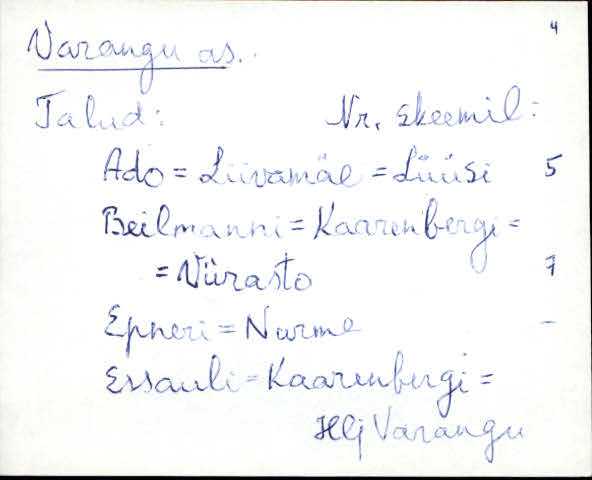 4
Varangu as.
Talud: Nr. skeemil:
Ado = Liivamäe = Lüüsi 5
Beilmanni = Kaarenbergi =
= Viirasto 7
Epneri = Nurme –
Essauli = Kaarenbergi =
Hlj Varangu